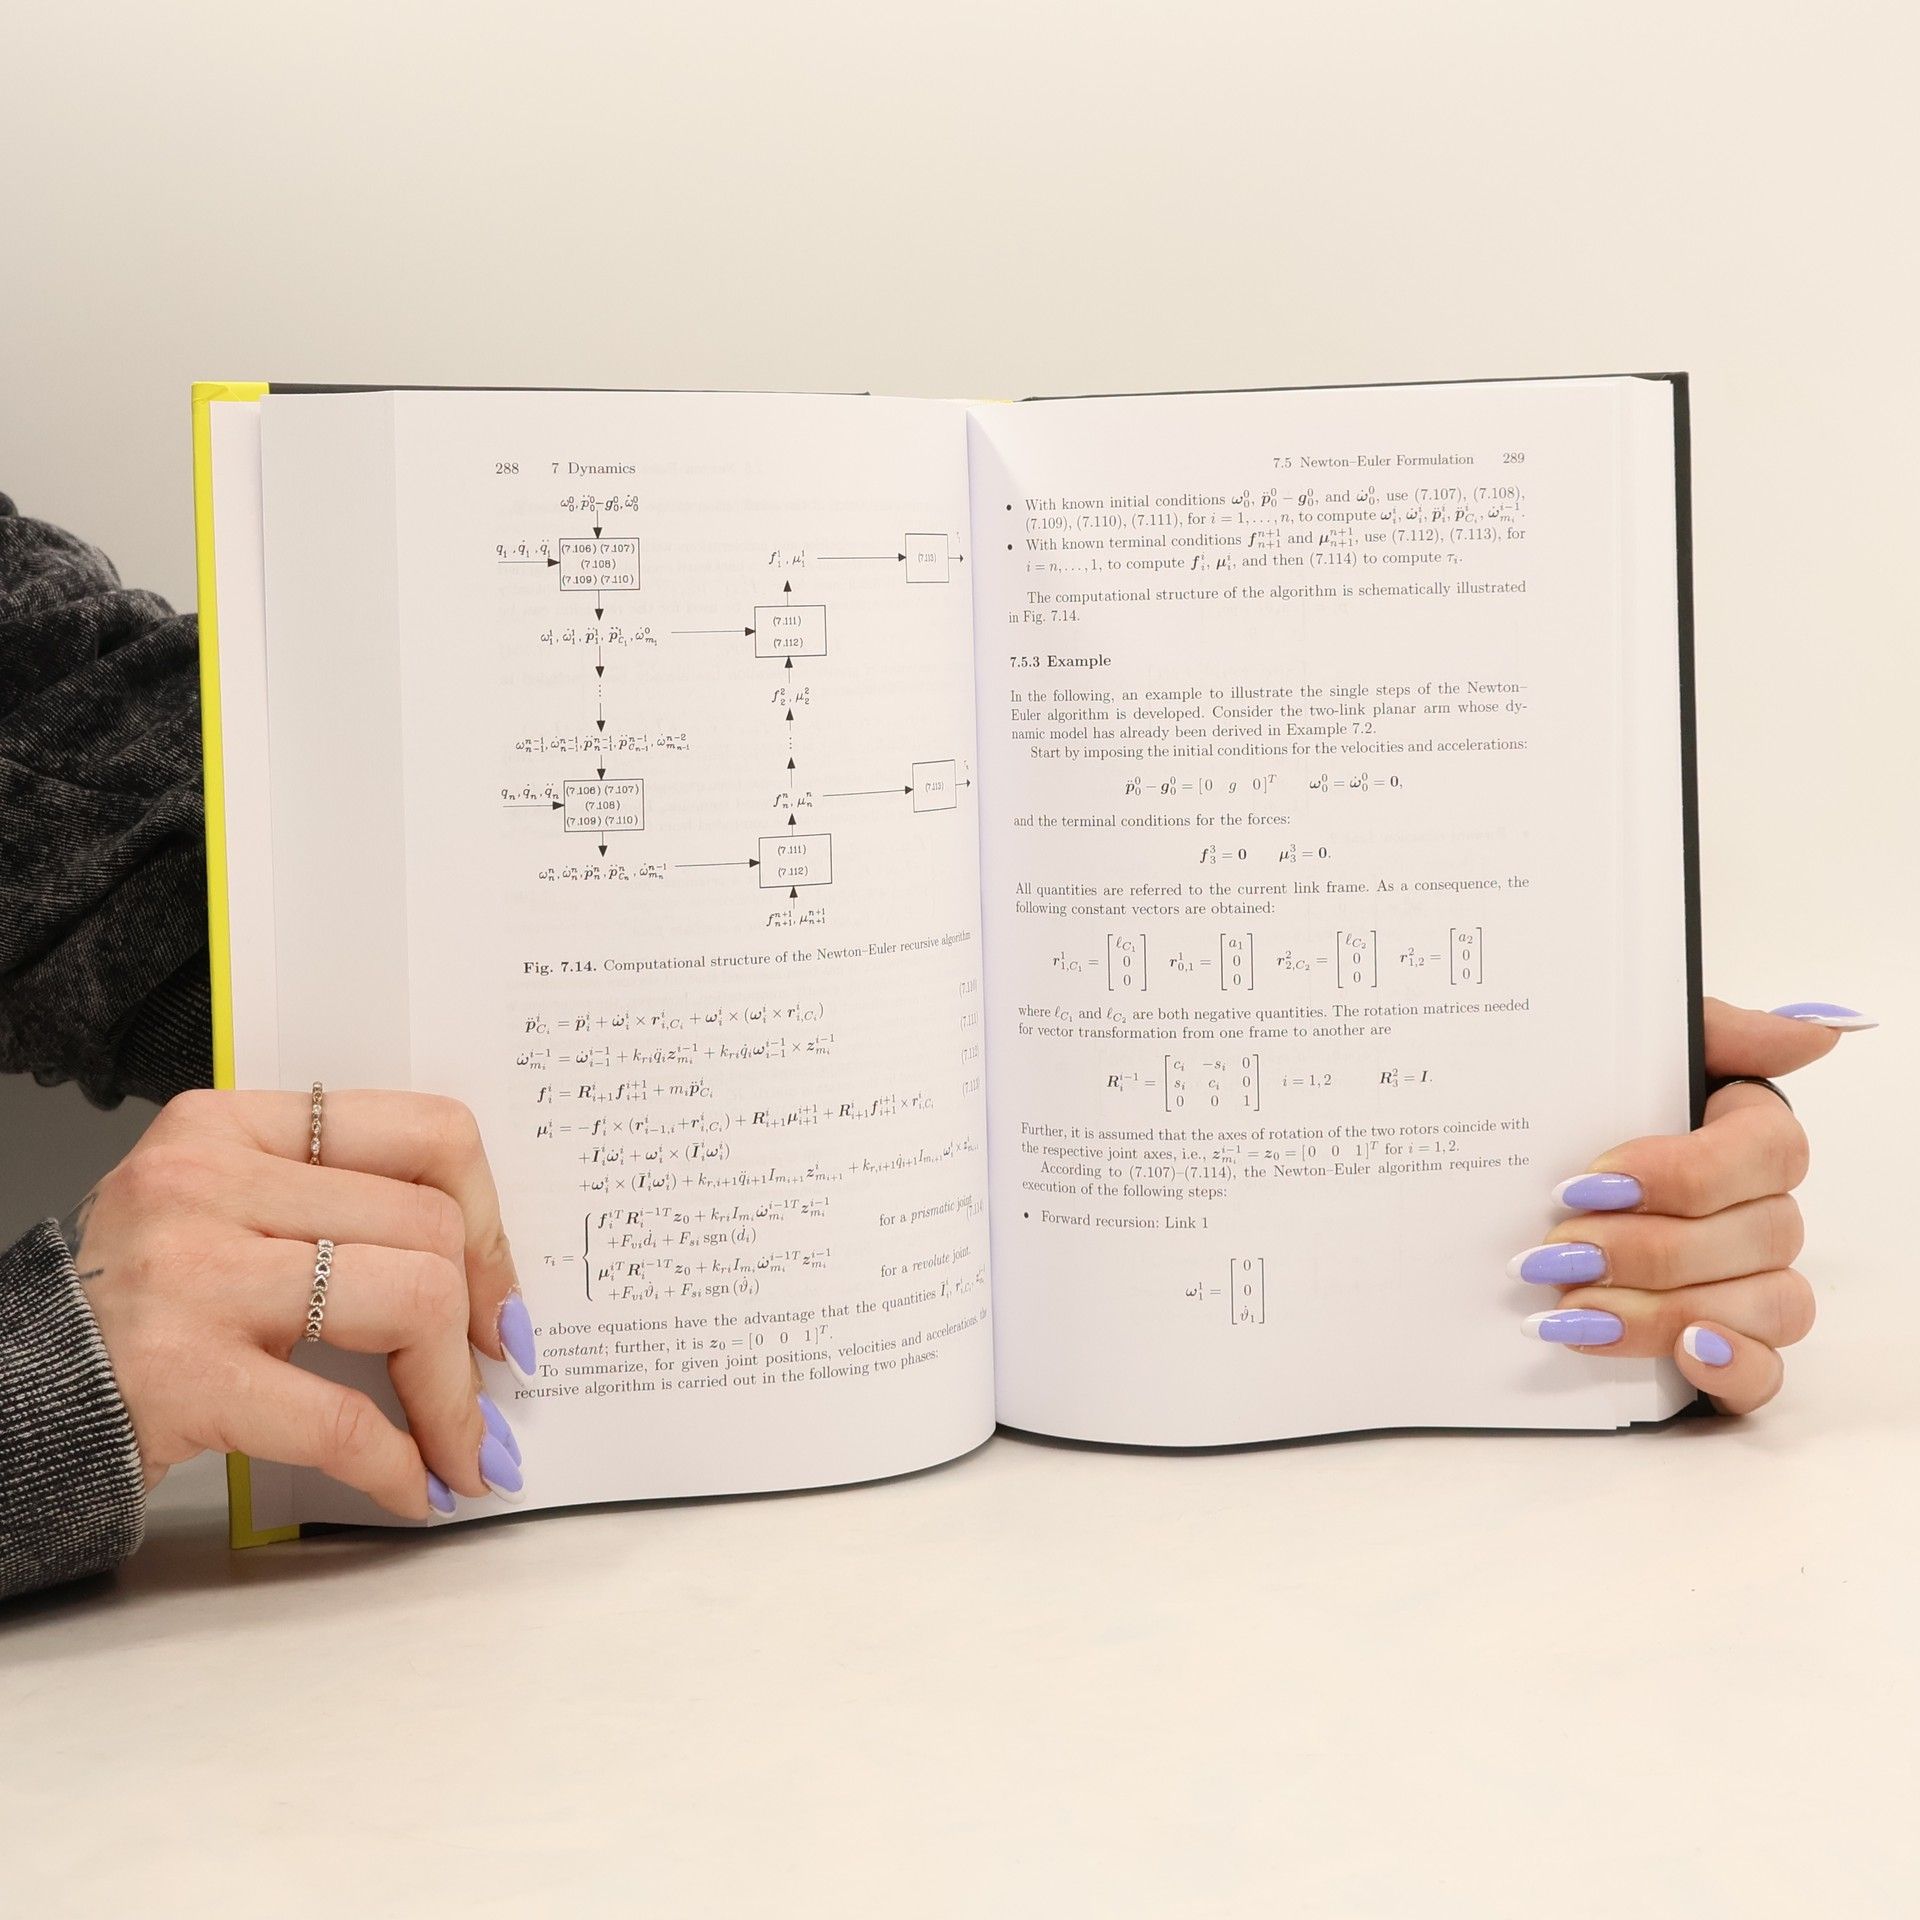 288 7 Dynamics
ω₀⁰, p̈₀⁰−g₀⁰, ω̇₀⁰
q₁, q̇₁, q̈₁
(7.106) (7.107)
(7.108)
(7.109) (7.110)
f₁¹, μ₁¹
(7.113)
ω₁¹, ω̇₁¹, p̈₁¹, p̈_{C₁}¹, ω̇_{m₁}⁰
(7.111)
(7.112)
f₂², μ₂²
⋮
⋮
ω_{n−1}^{n−1}, ω̇_{n−1}^{n−1}, p̈_{n−1}^{n−1}, p̈_{C_{n−1}}^{n−1}, ω̇_{m_{n−1}}^{n−2}
qₙ, q̇ₙ, q̈ₙ
(7.106) (7.107)
(7.108)
(7.109) (7.110)
fₙⁿ, μₙⁿ
(7.113)
ωₙⁿ, ω̇ₙⁿ, p̈ₙⁿ, p̈_{Cₙ}ⁿ, ω̇_{mₙ}^{n−1}
(7.111)
(7.112)
f_{n+1}^{n+1}, μ_{n+1}^{n+1}
Fig. 7.14. Computational structure of the Newton–Euler recursive algorithm
p̈_{C_i}^i = p̈_i^i + ω̇_i^i × r_{i,C_i}^i + ω_i^i × (ω_i^i × r_{i,C_i}^i) (7.110)
ω̇_{m_i}^{i−1} = ω̇_{i−1}^{i−1} + k_{ri} q̈_i z_{m_i}^{i−1} + k_{ri} q̇_i ω_{i−1}^{i−1} × z_{m_i}^{i−1} (7.111)
f_i^i = R_{i+1}^i f_{i+1}^{i+1} + m_i p̈_{C_i}^i (7.112)
μ_i^i = −f_i^i × (r_{i−1,i}^i + r_{i,C_i}^i) + R_{i+1}^i μ_{i+1}^{i+1} + R_{i+1}^i f_{i+1}^{i+1} × r_{i,C_i}^i (7.113)
+Ī_i^i ω̇_i^i + ω_i^i × (Ī_i^i ω_i^i)
+ω_i^i × (Ī_i^i ω_i^i) + k_{r,i+1} q̈_{i+1} I_{m_{i+1}} z_{m_{i+1}}^i + k_{r,i+1} q̇_{i+1} I_{m_{i+1}} ω_i^i × z_{m_{i+1}}^i
f_i^{iT} R_i^{i−1T} z₀ + k_{ri} I_{m_i} ω̇_{m_i}^{i−1T} z_{m_i}^{i−1}
+F_{vi} ḋ_i + F_{si} sgn (ḋ_i) for a prismatic joint
τ_i = (7.114)
μ_i^{iT} R_i^{i−1T} z₀ + k_{ri} I_{m_i} ω̇_{m_i}^{i−1T} z_{m_i}^{i−1}
+F_{vi} ϑ̇_i + F_{si} sgn (ϑ̇_i) for a revolute joint.
e above equations have the advantage that the quantities Ī_i^i, r_{i,C_i}^i,
constant; further, it is z₀ = [0 0 1]^T.
To summarize, for given joint positions, velocities and accelerations, the
recursive algorithm is carried out in the following two phases:
7.5 Newton–Euler Formulation 289
• With known initial conditions ω₀⁰, p̈₀⁰ − g₀⁰, and ω̇₀⁰, use (7.107), (7.108),
(7.109), (7.110), (7.111), for i = 1, . . . , n, to compute ω_i^i, ω̇_i^i, p̈_i^i, p̈_{C_i}^i, ω̇_{m_i}^{i−1}.
• With known terminal conditions f_{n+1}^{n+1} and μ_{n+1}^{n+1}, use (7.112), (7.113), for
i = n, . . . , 1, to compute f_i^i, μ_i^i, and then (7.114) to compute τ_i.
The computational structure of the algorithm is schematically illustrated
in Fig. 7.14.
7.5.3 Example
In the following, an example to illustrate the single steps of the Newton–
Euler algorithm is developed. Consider the two-link planar arm whose dy-
namic model has already been derived in Example 7.2.
Start by imposing the initial conditions for the velocities and accelerations:
p̈₀⁰ − g₀⁰ = [0 g 0]^T ω₀⁰ = ω̇₀⁰ = 0,
and the terminal conditions for the forces:
f₃³ = 0 μ₃³ = 0.
All quantities are referred to the current link frame. As a consequence, the
following constant vectors are obtained:
r_{1,C₁}^1 = [ℓ_{C₁} 0 0] r_{0,1}^1 = [a₁ 0 0] r_{2,C₂}^2 = [ℓ_{C₂} 0 0] r_{1,2}^2 = [a₂ 0 0]
where ℓ_{C₁} and ℓ_{C₂} are both negative quantities. The rotation matrices needed
for vector transformation from one frame to another are
c_i −s_i 0
R_i^{i−1} = s_i c_i 0 i = 1, 2 R₃² = I.
0 0 1
Further, it is assumed that the axes of rotation of the two rotors coincide with
the respective joint axes, i.e., z_{m_i}^{i−1} = z₀ = [0 0 1]^T for i = 1, 2.
According to (7.107)–(7.114), the Newton–Euler algorithm requires the
execution of the following steps:
• Forward recursion: Link 1
ω₁¹ = [0 0 ϑ̇₁]